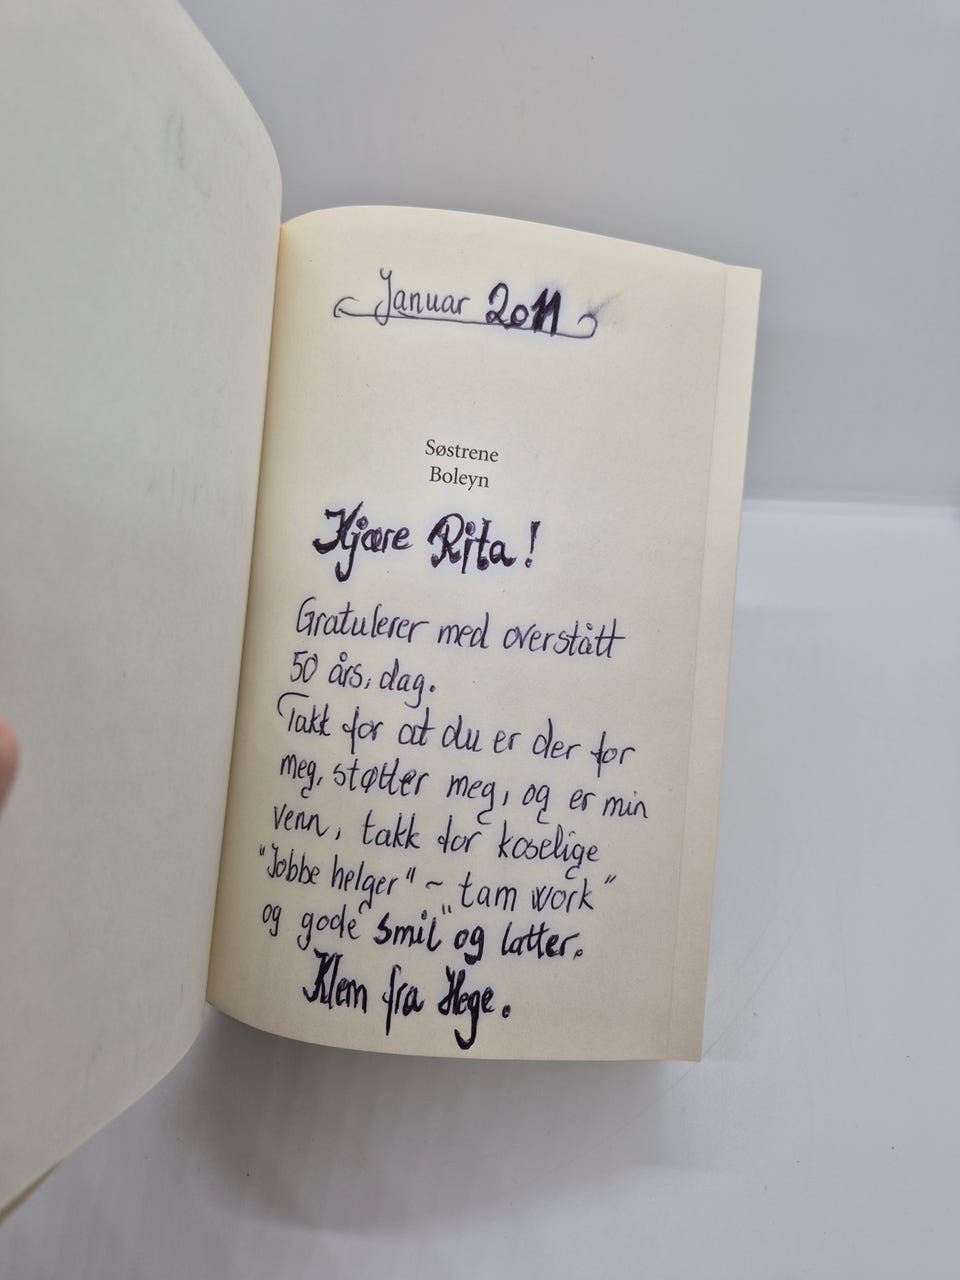 Januar 2011
Søstrene
Boleyn
Kjære Rita!
Gratulerer med overstått
50 års, dag.
Takk for at du er der for
meg, støtter meg, og er min
venn, takk for koselige
"Jobbe helger" ~ "tam work"
og gode smil" og latter.
Klem fra Hege.